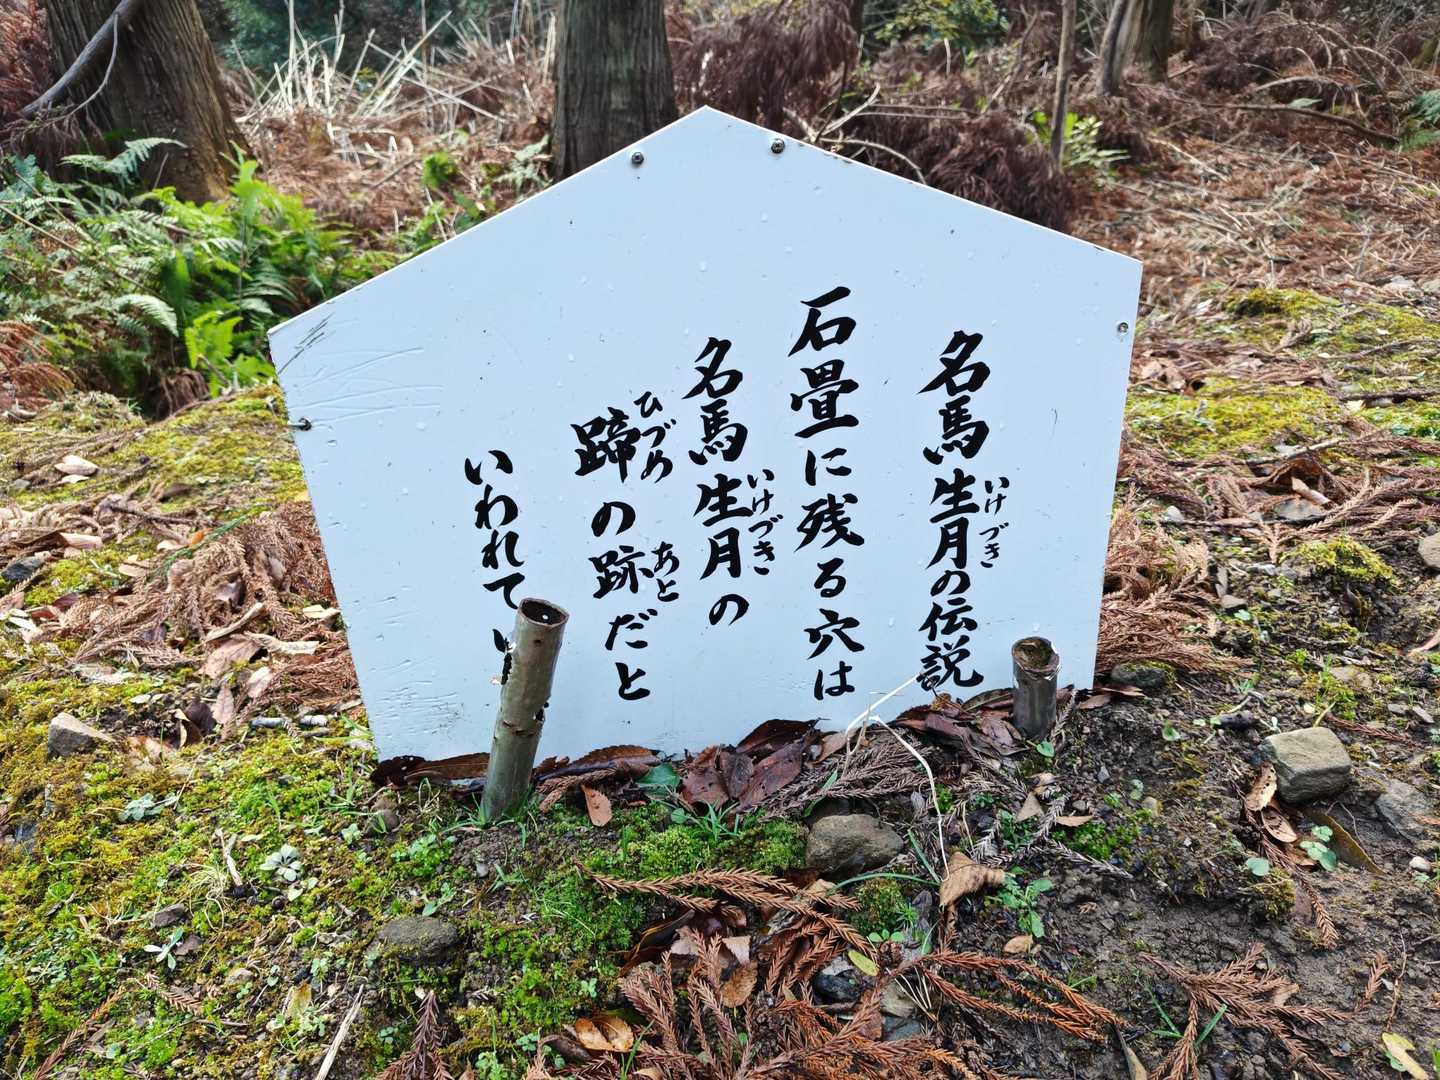 名馬生月の伝説
いけづき
石畳に残る穴は
名馬生月の
いけづき
蹄の跡だと
ひづめ
あと
いわれてい